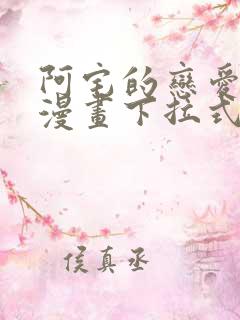 阿宅的戀愛
漫畫下拉式
侯真丞